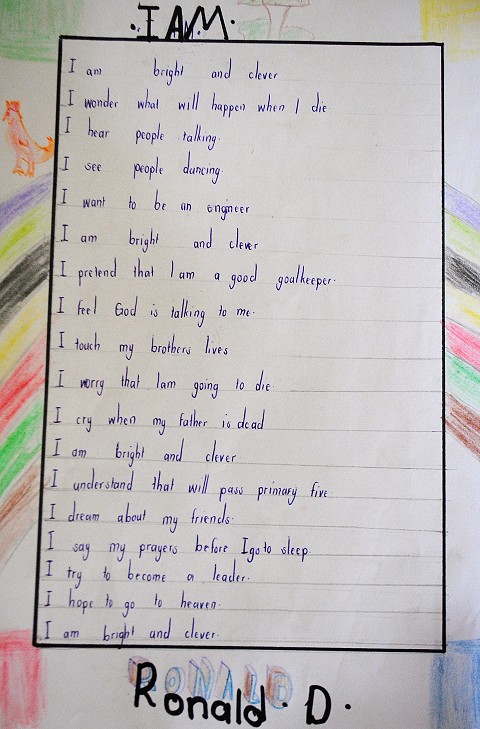 I AM
I am bright and clever
I wonder what will happen when I die
I hear people talking.
I see people dancing.
I want to be an engineer
I am bright and clever
I pretend that I am a good goalkeeper.
I feel God is talking to me.
I touch my brothers lives
I worry that I am going to die.
I cry when my father is dead
I am bright and clever.
I understand that will pass primary five
I dream about my friends.
I say my prayers before I go to sleep.
I try to become a leader.
I hope to go to heaven.
I am bright and clever.
RONALD
Ronald. D.